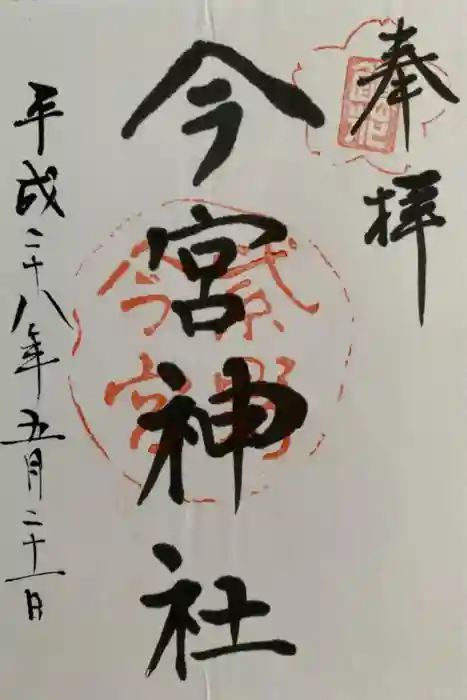 奉拝
今宮神社
紫野
今宮
平成二十八年五月二十一日